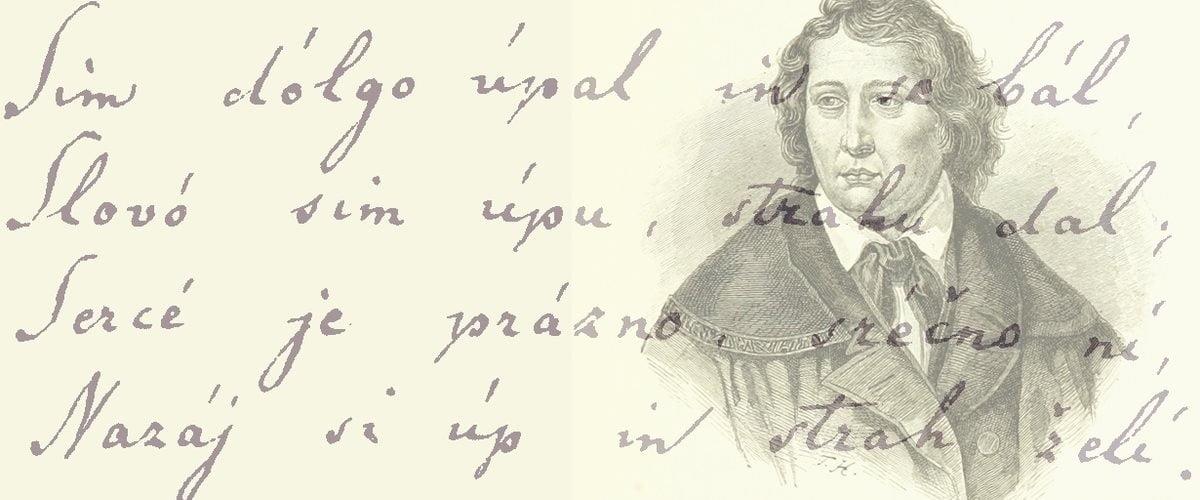 Sim dólgo úpal in se bál,
Slovó sim úpu, strahu dal;
Sercé je prázno, sréčno ni,
Nazáj si úp in strah želí.
F. K.